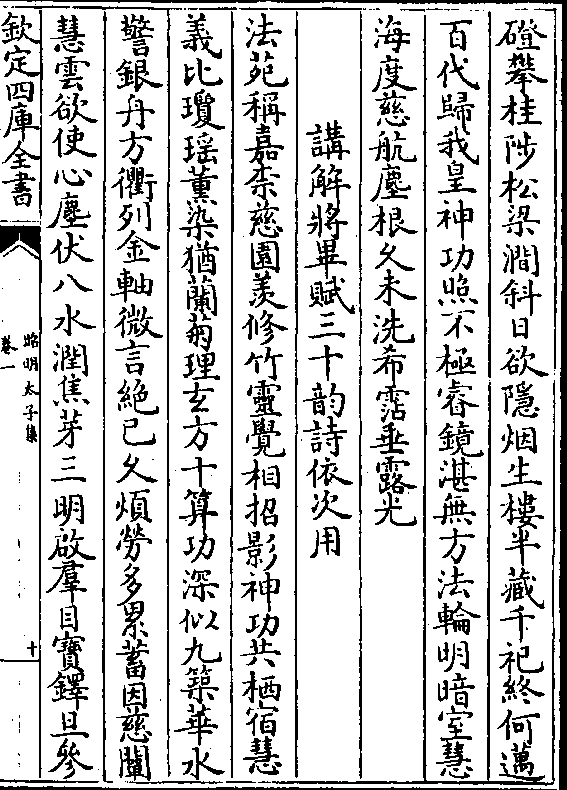 磴攀桂陟松梁澗斜日欲隱烟生樓半藏千祀終何邁
百代歸我皇神功照不極睿鏡湛無方法輪明暗室慧
海度慈航塵根久未洗希霑垂露光
講解將畢賦三十韵詩依次用
法苑稱嘉柰慈園羨修竹靈覺相招影神功共栖宿慧
義比瓊瑶薫染猶蘭菊理玄方十算功深似九築華水
警銀舟方衢列金軸微言絶已久煩勞多累蓄因慈闡
慧雲欲使心塵伏八水潤焦芽三明啟羣目寶鐸旦參
欽定四庫全書
昭明太子集
卷一
十